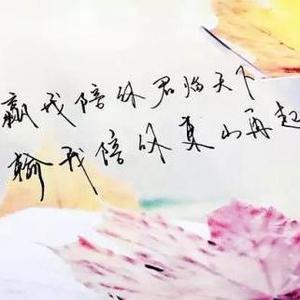 赢我陪你君临天下
输我陪你东山再起